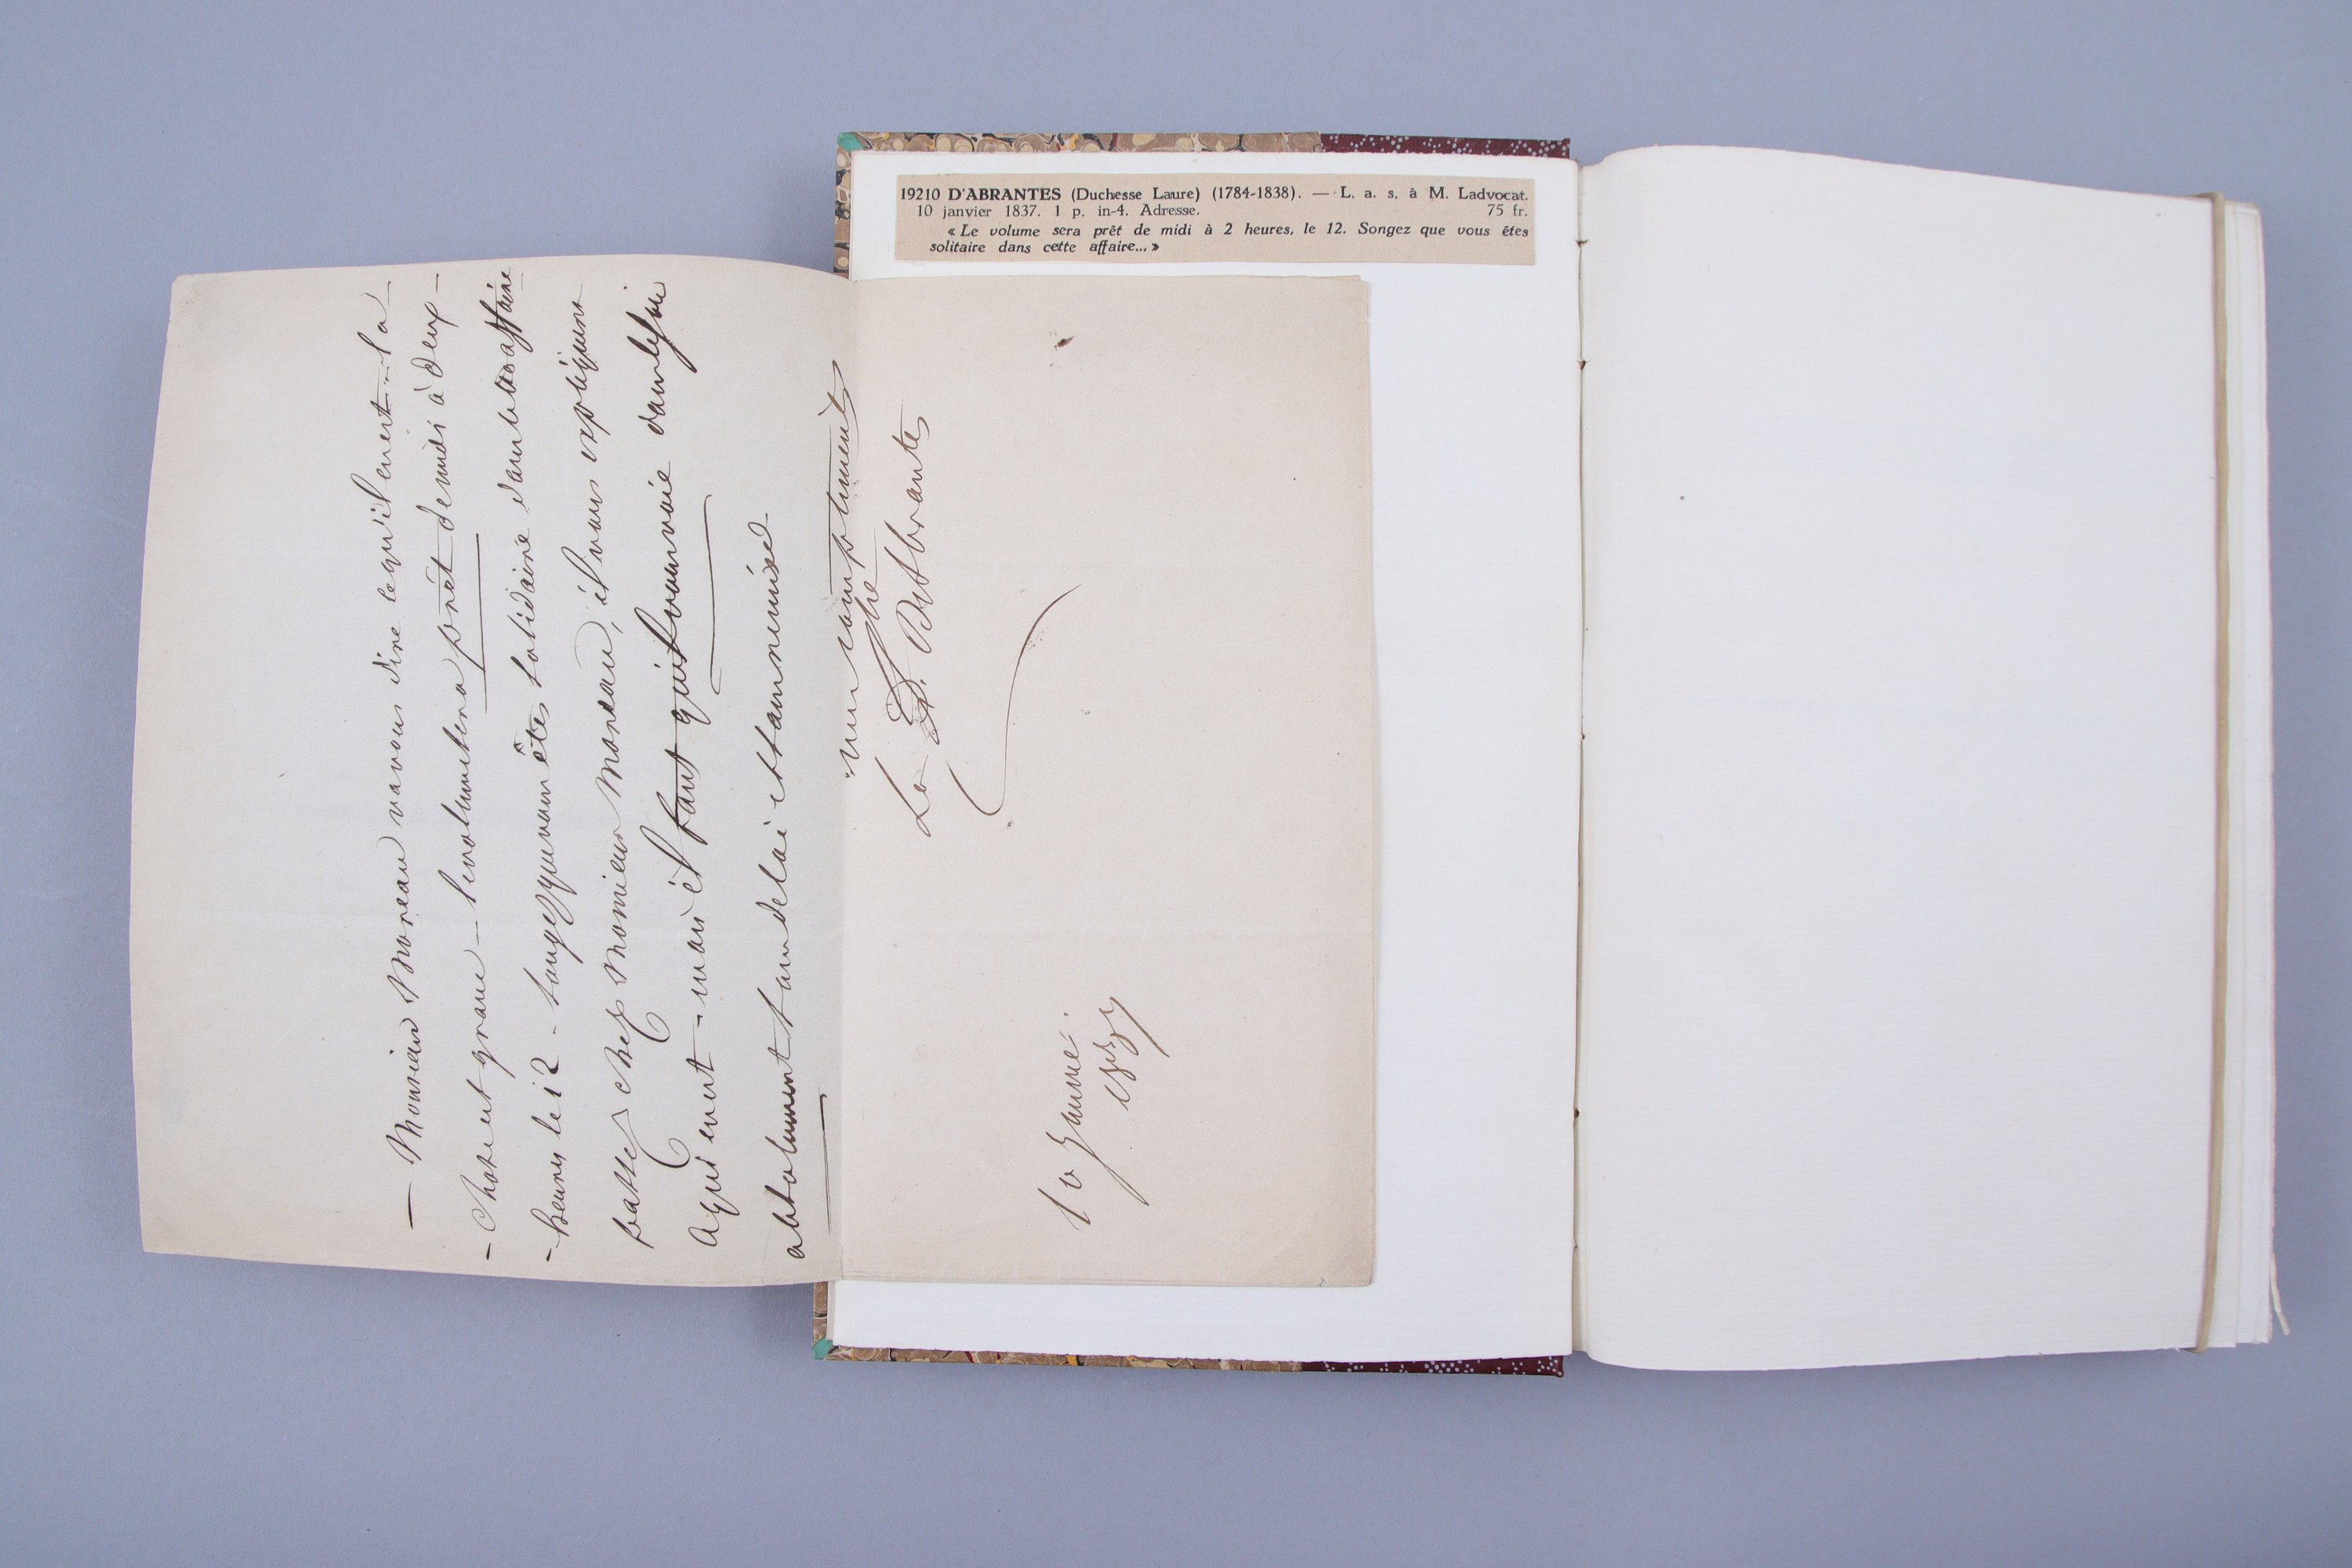 19210 D'ABRANTES (Duchesse Laure) (1784-1838). — L. a. s. à M. Ladvocat.
10 janvier 1837. 1 p. in-4. Adresse. 75 fr.
« Le volume sera prêt de midi à 2 heures, le 12. Songez que vous êtes
solitaire dans cette affaire... »
— Monsieur Moreau va vous dire ce qu'il en est. la
- chose est grave — le volume sera prêt de midi à deux -
- heures le 12 - songez que vous êtes solidaire dans cette affaire
passez chez Monsieur Moreau, il vous expliquera
a qui en est - mais il faut qu'il
absolument sans délai et sans remise
mes compliments
La Dsse D'Abrantes
10 Janvé.
1837